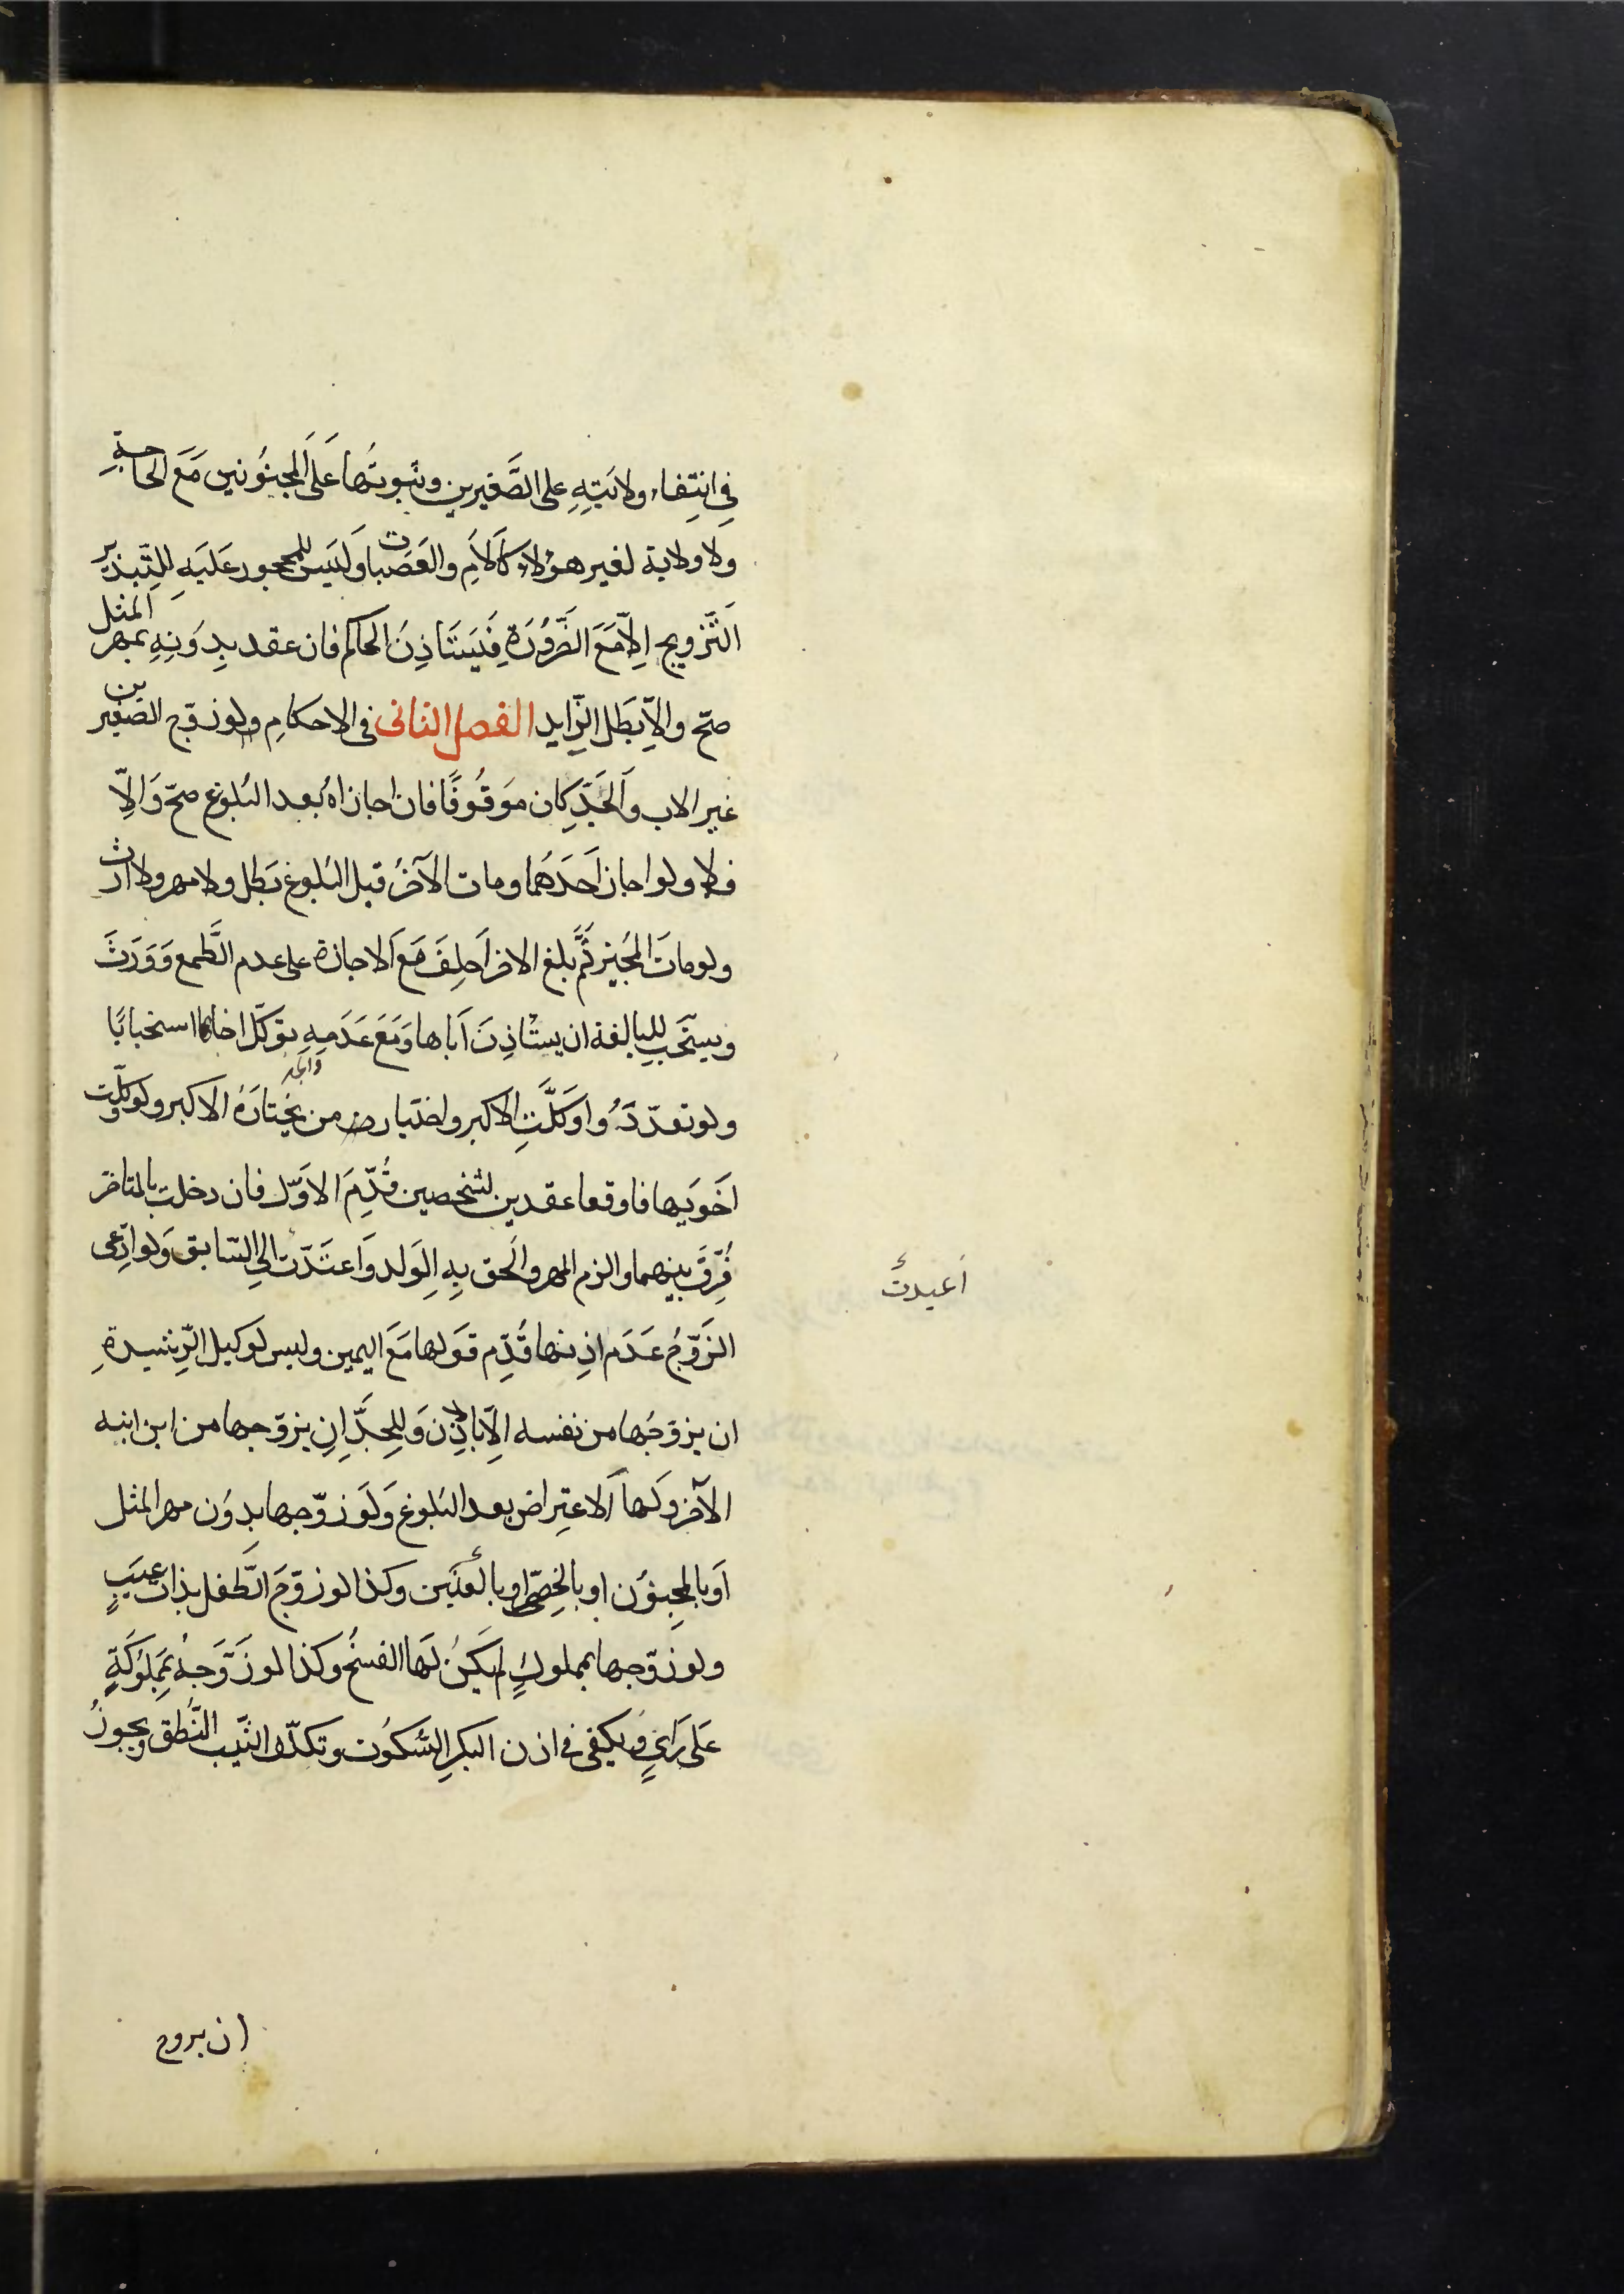 فِي انتِفاء ولايَتِهِ على الصَّغيرين وثبوتُها عَلَى المجنوُنين مَعَ الحاجةِ
ولا ولاية لغير هؤلاء كَالاُمِ والعَصَبات وَليَس للمحجور عَلَيهِ لِلتّبذير
اَلتَّزويج اِلّا مَعَ الضَّروُرَةِ فَيَستَاذِنَ الحاكم فان عقد بِدوَنِهِ بمهر المثل
صحّ والّا بَطَل الزّايد الفصل الثانى فى الاحكامِ ولوزوّج الصّغيرين
غير الاب وَالجَدِّ كان موَقوُفًا فان اجازاهُ بَعد البُلوغِ صحّ وَالِّا
فلا ولو اجاز اَحَدَهُما ومات الآخَرُ قبل البُلوغ بَطَل ولا مهر ولا ارث
ولو ماتَ المجُيز ثُمَّ بلغ الاخر اُحلِفَ مَعَ اَلاجازة على عدم الطَّمع وَوَرَثَ
ويستَحب للبالغة ان يستْاذِنَ اَباها وَمَعَ عَدَمهِ توَكّل اخاها استحبابًا
ولو تعدّدَوُا وَكَّلَتِ الاكبر واختيارت من يَختارَهُ الاكبر ولو وكّلت
اَخوَيها فاوقعا عقدين لشخصين قُدِّمَ الاوَّل فان دخلت بالمتاخر
فُرِّقَ بينهما والزم المهر واُلحق بِهِ الوَلد وَاعتَدّت الي السّابق وَلو ادّعى
الزَوّجُ عَدَم اذِنها قُدِّم قوَلها مَعَ اليمين وليس لوَكيل الرّشيدةِ
ان يزوّجُها من نفسه اِلّا باذِن وَلِلجَدِّ اِن يزوّجها من ابن ابنه
الآخر وَلَها اَلاعتِراض بعد البُلوغ وَلوَ زوّجها بِدوُن مهر المثل
اَو بالمجنوُن او بالخِصّى او بالعنّين وكذا لو زوّجَ الطّفل بذات عيَبٍ
ولو زوّجها بمملوكٍ لم يكَنُ لَها الفسخُ وكذا لو زَوَّجهُ بمَملوُكَةٍ
عَلى رَايٍ وُيكفى في اذن البكرِ السّكوُت وتكلّف الثيّب النُّطق ويجوزُ
اُعيدت
ان يزوج